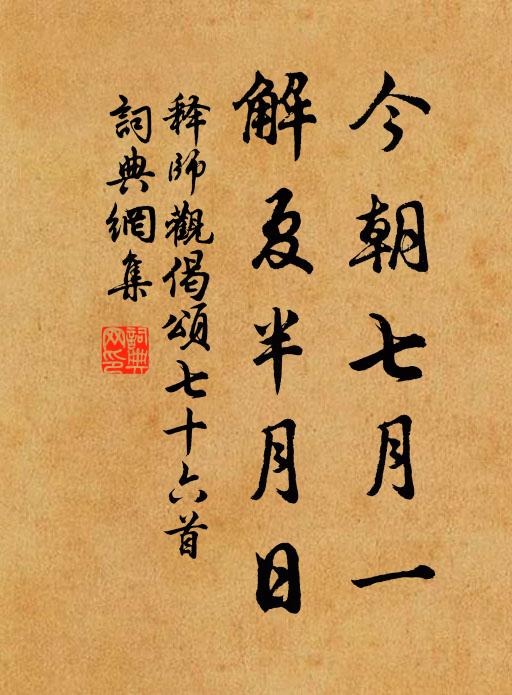 今朝七月一
解夏半月日
释師觀偈頌七十六首
詞典網集
詞典網印